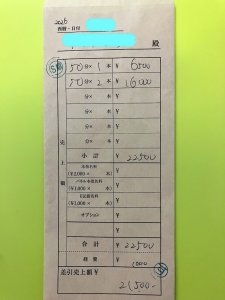 2026
西暦・日付
殿
50分× 1 本 ¥ 6500
50分× 2 本 ¥ 16000
分× 本 ¥
分× 本 ¥
分× 本 ¥
分× 本 ¥
分× 本 ¥
売上額
小計 ¥ 22500
本指名料
(¥2,000 × 本) ¥
パネル本指名料
(¥1,000 × 本) ¥
(¥1,000 × 本) ¥
オプション ¥
合計 ¥ 22500
雑費 ¥ 1000
差引売上額 ¥
21500-